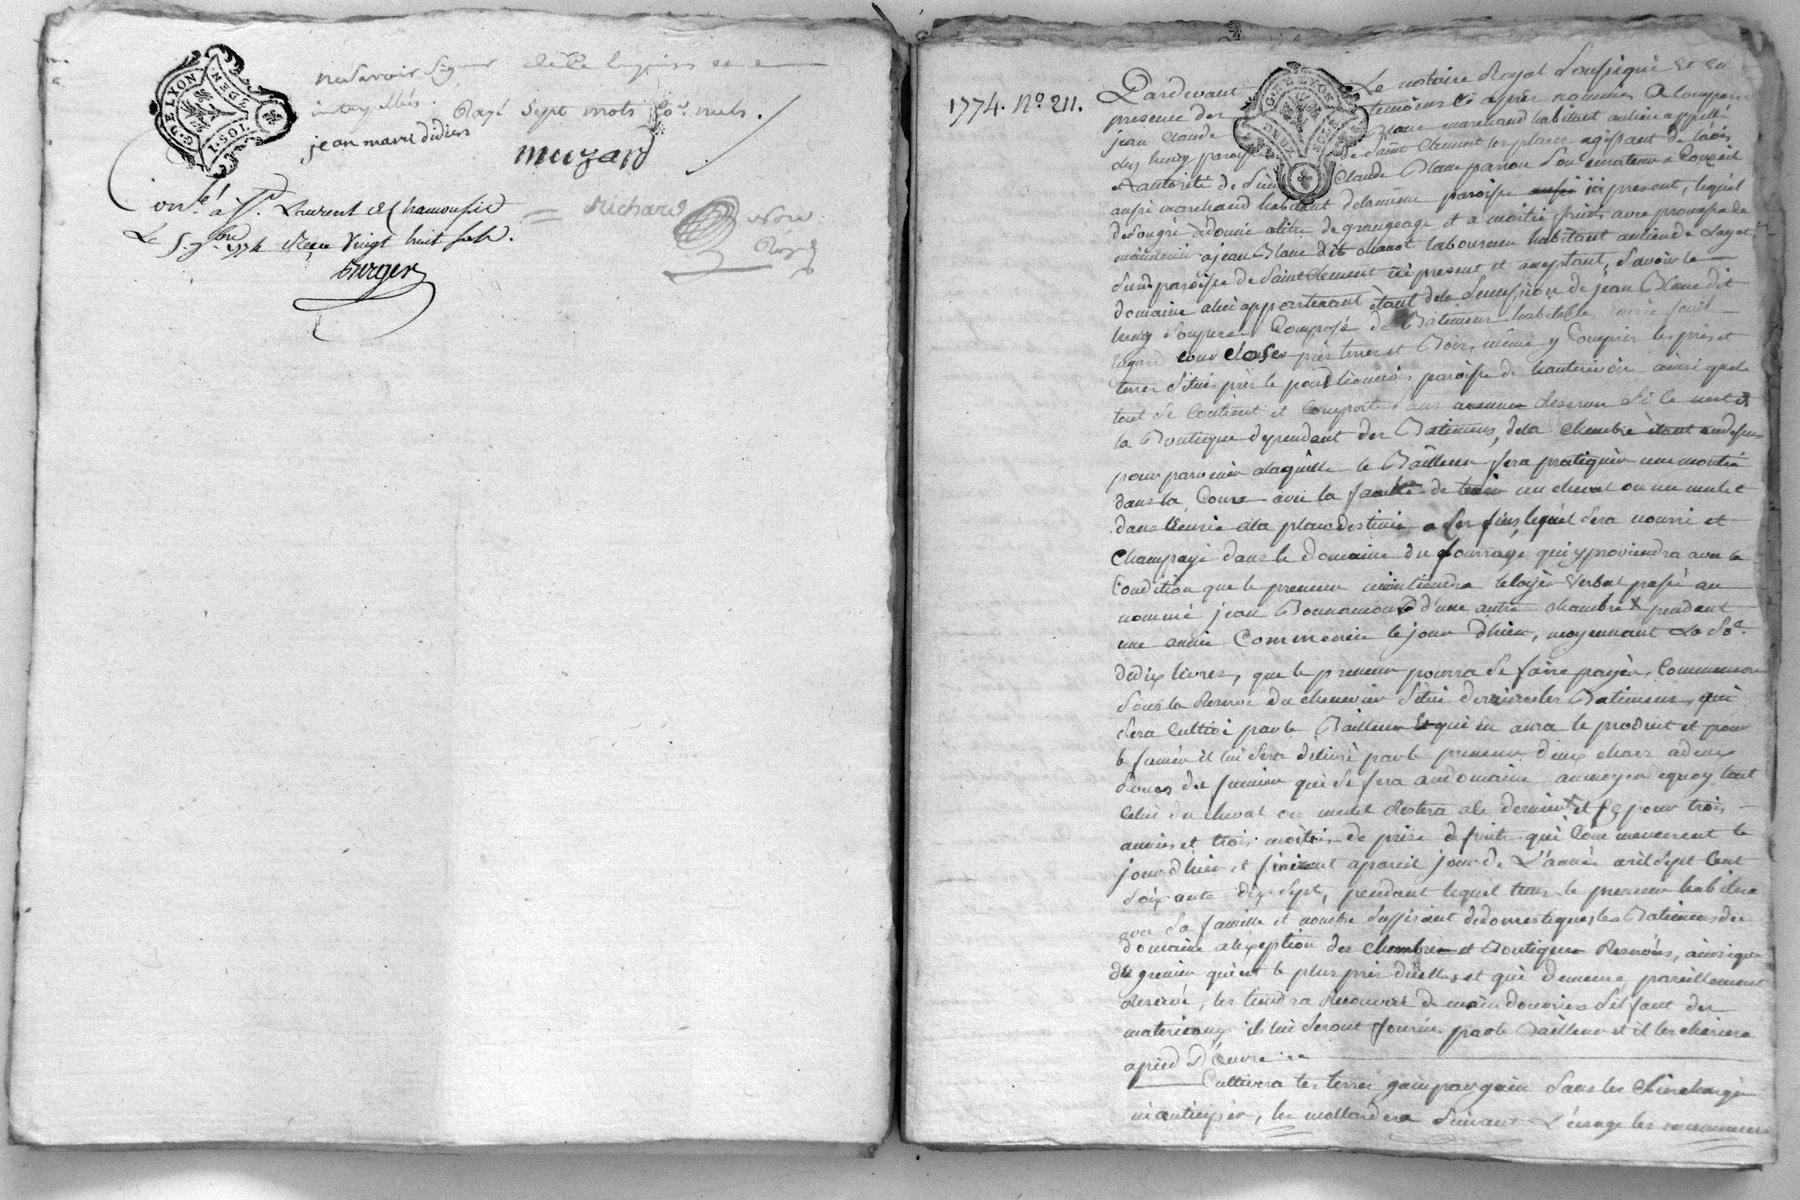 G. DE LYON
DEN.
1 SOL
ne Savoir Signer de Ce Enquis et
interpellés. Rayé Sept mots Co.e nuls.
jean marie didier
muzard
Conlé. à St. Laurent de Chamousset
Le 5. 7bre 1774 Reçu Vingt huit sols.
Burger
Richard
Nore.
Royal
1774. No. 211.
G. DE LYON
Pardevant Le notaire Royal Soussigné et en
presence des temoins Ci après nommés A Comparu
jean Claude Blanc marchand habitant au lieu appellé
chez huidy paroisse de Saint Clement les places agissant de l'avis
et autorité de Sieur Claude Blanc parrou Son Curateur a Conseil
aussi marchand habitant de la même paroisse aussi ici present, lequel
de Son gré a donné a titre de grangeage et a moitié fruits avec promesse de
maintenir a jean Blanc dit chanot laboureur habitant au lieu de Layat
Susd. paroisse de Saint Clement ici present et acceptant, Savoir le
domaine a lui appartenant étant de la Succession de jean Blanc dit
huidy Son pere Composé de Batimens habitable,
cour Closes près terres et Bois, même y Compris les près et
terres Situés près le pont lionnois paroisse de hauterivoir ainsi que le
tout Se Contient et Comporte Sans aucune reserve Si Ce n'est de
la Boutique dependant des Batimens, de la Chambre étant au dessus
pour parvenir a laquelle le Bailleur fera pratiquer une montée
dans la Cour avec la faculté de tenir un cheval ou un mulet
dans l'Ecurie a la place destinée a Ses fins, lequel Sera nourri et
Champayé dans le domaine du fourrage qui y proviendra avec la
Condition que le preneur maintiendra le loyer Verbal passé au
nommé jean Bonnamour d'une autre chambre pendant
une année Commencée le jour d'hier, moyennant la Soe.
de dix livres, que le preneur pourra Se faire payer, Comme aussi
Sous la Reserve du chenevier Situé derriere les Batimens, qui
Sera Cultivé par le Bailleur Et qui en aura le produit et pour
le fumer il lui Sera delivré par le preneur deux chars a deux
Roues de fumier qui Se fera au domaine au moyen de quoy tout
Celui du cheval ou mulet Restera a Ce dernier et Ce pour trois
années et trois moitiés de prise de fruits qui Commencerent le
jour d'hier et finiront a pareil jour de L'année mil Sept Cent
Soixante dix Sept, pendant lequel tems le preneur habitera
avec Sa famille et nombre Suffisant de domestiques les Batimens du
domaine a l'exception des Chambre et Boutique Reservés, ainsi que
du grenier qui est le plus près d'icelles et qui demeure pareillement
Reservé, les tiendra Recouvers de main d'ouvriers S'il faut des
materiaux ils lui Seront fournis par le Bailleur et il les chariera
a pied D'Œuvre
Cultivera les terres gain par gain Sans les Surcharger
ni anticiper, les mottera Suivant L'usage les